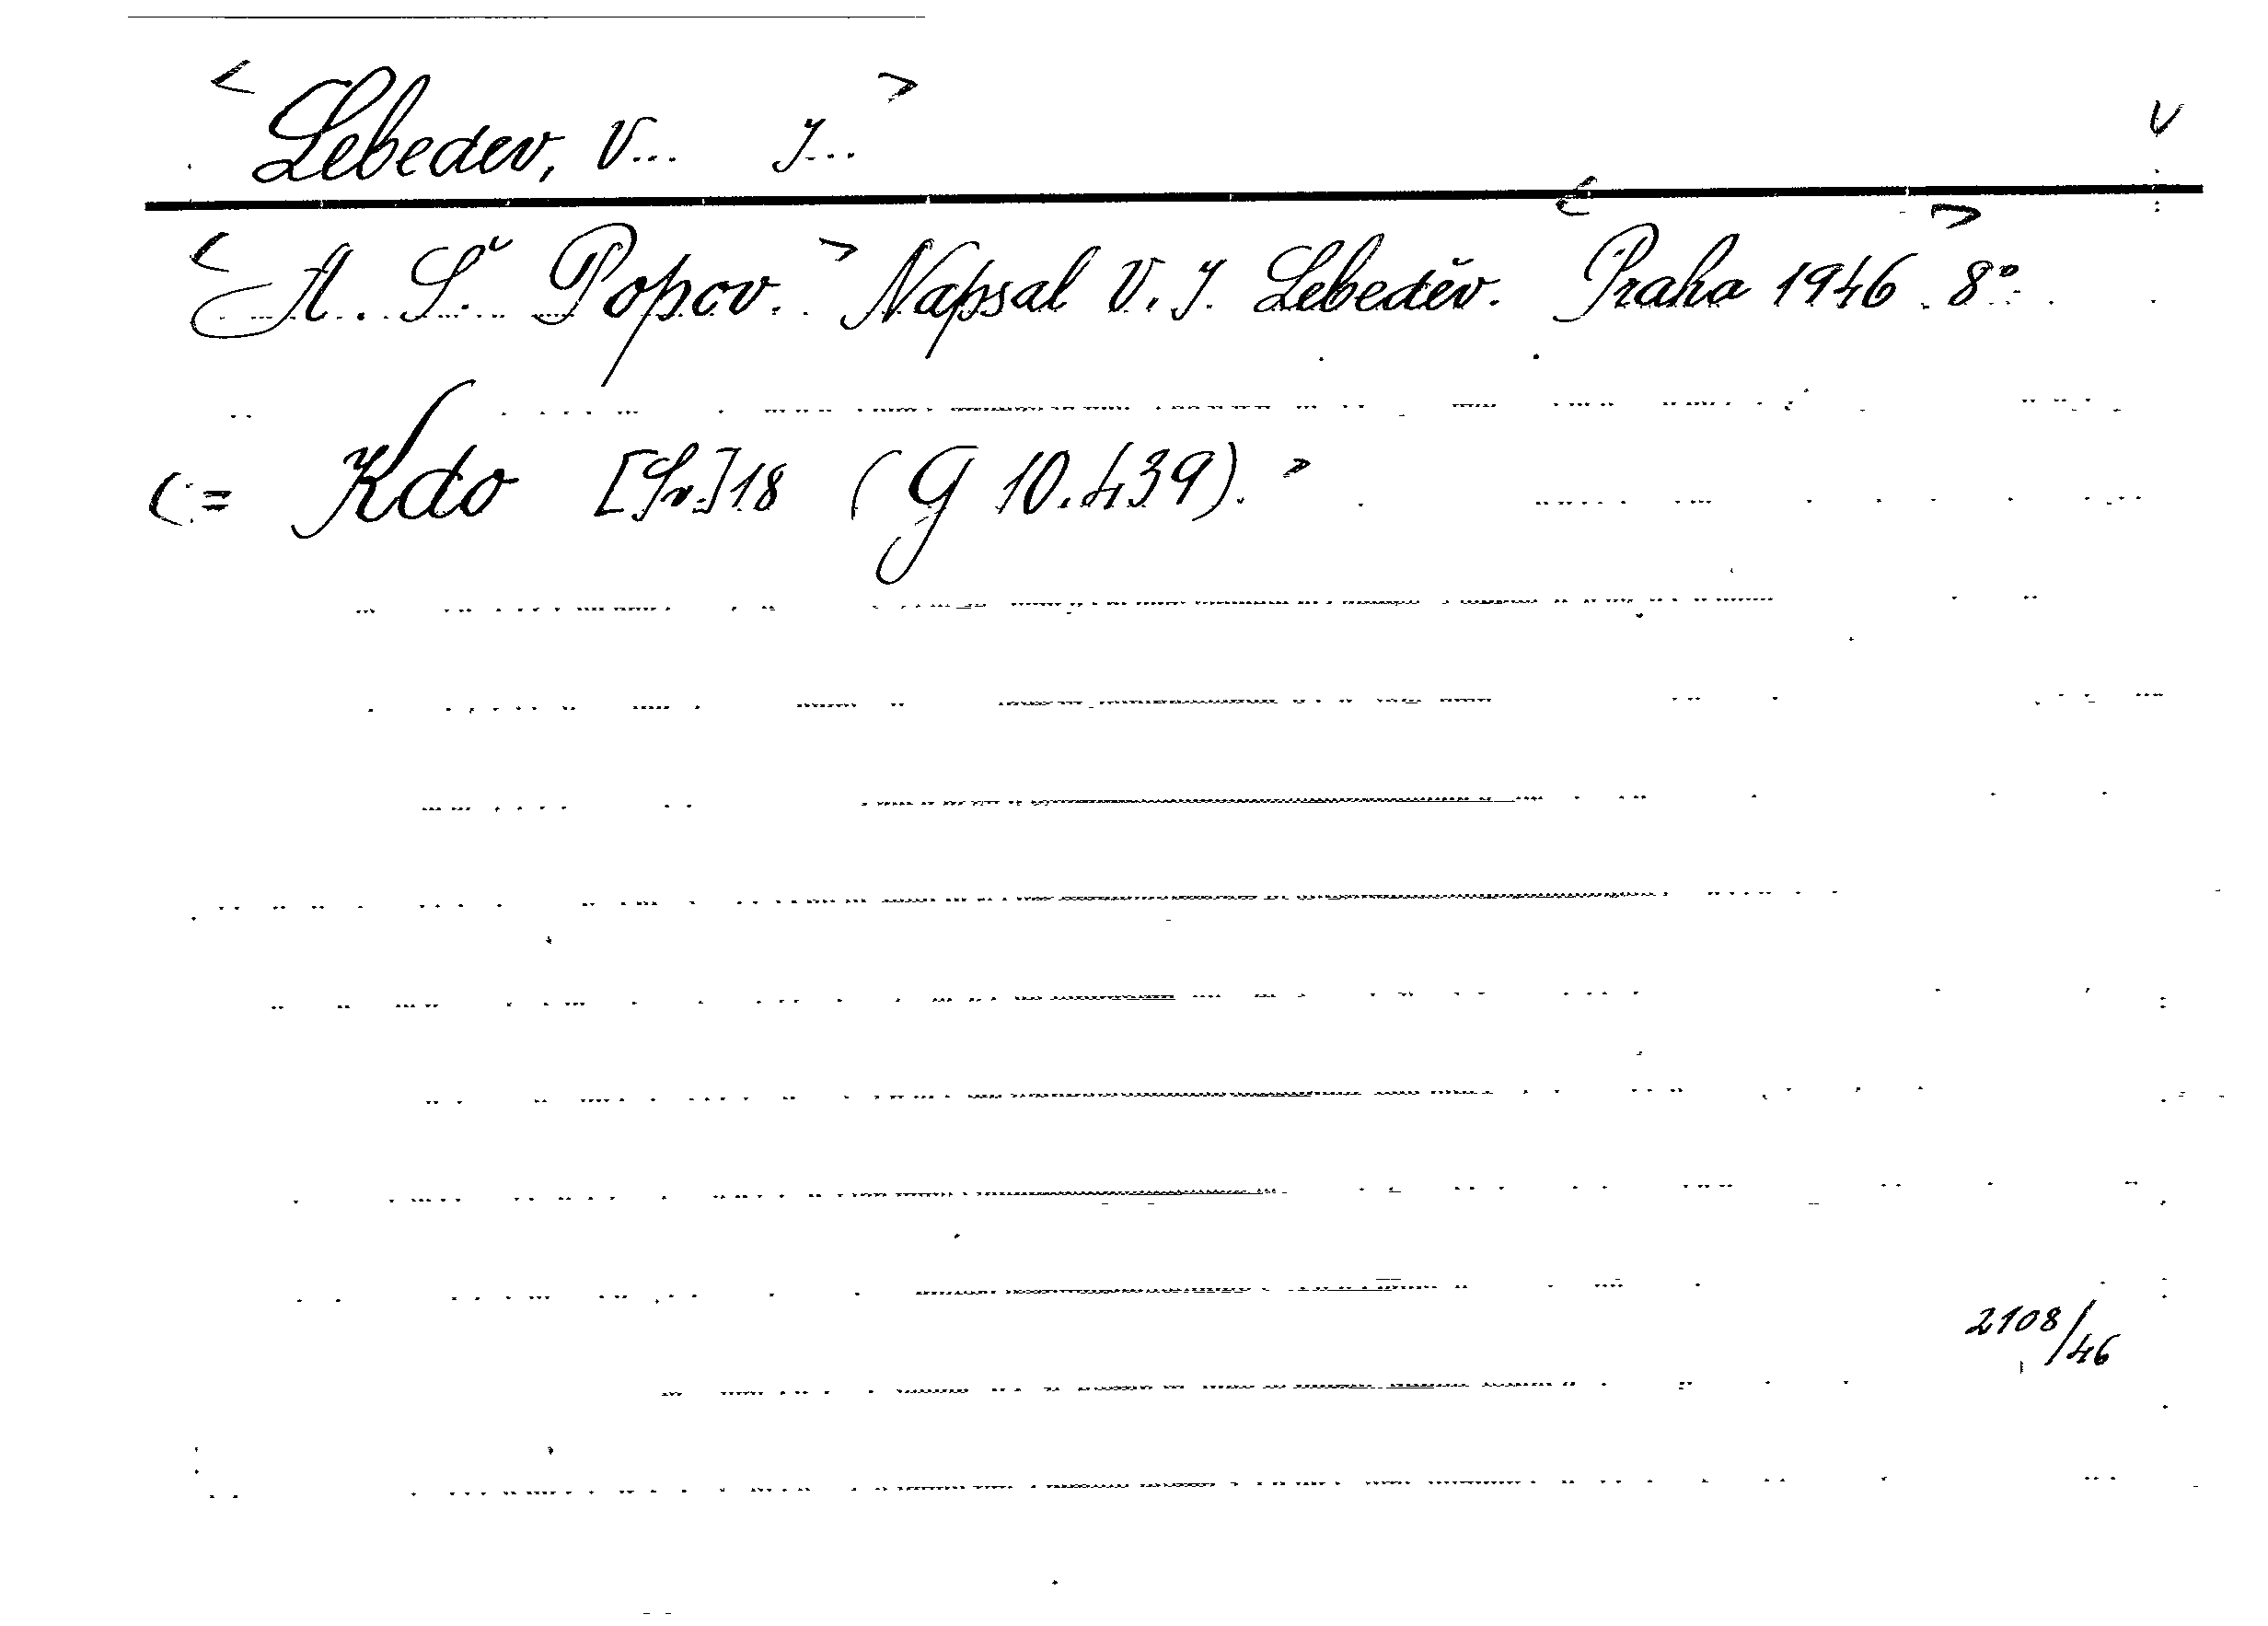 < Lebedev, V... J... >
v
< A. S. Popov. > Napsal V. J. Lebeděv. < Praha 1946. > 8°
(= Kdo [Sv.] 18 (G 10.439). >
2108/46